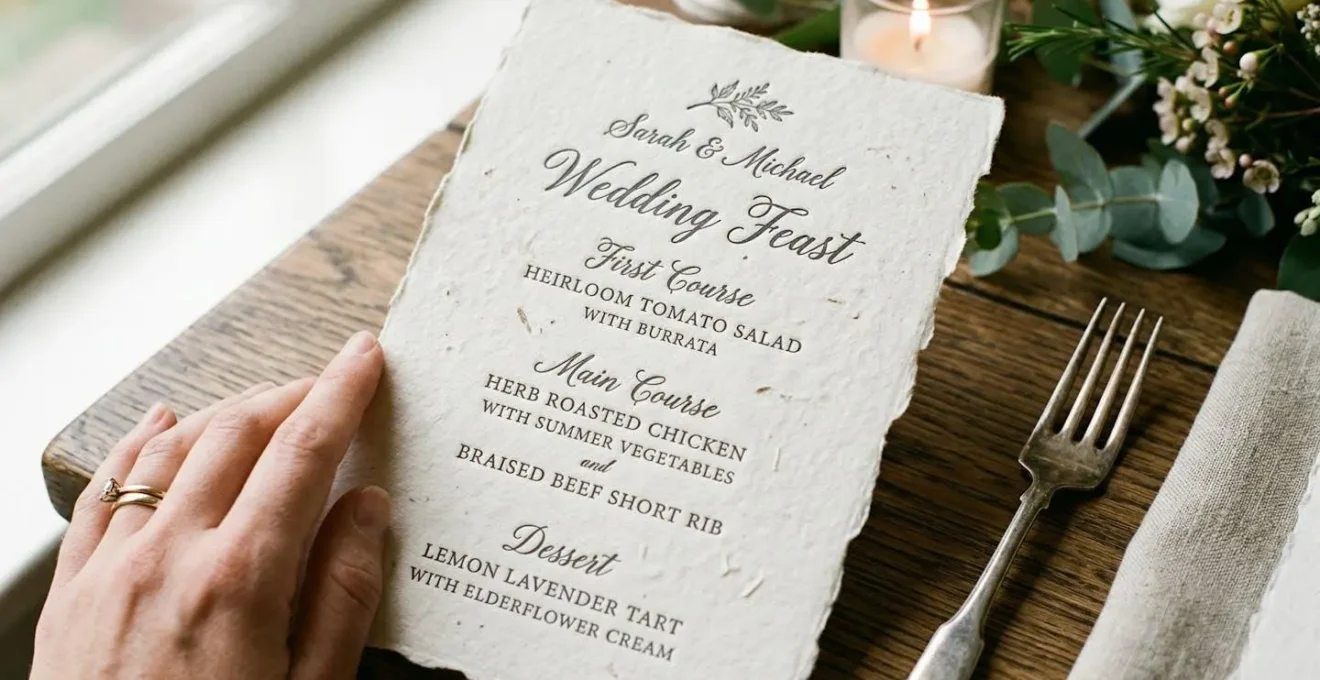 Sarah & Michael
Wedding Feast
First Course
HEIRLOOM TOMATO SALAD
WITH BURRATA
Main Course
HERB ROASTED CHICKEN
WITH SUMMER VEGETABLES
and
BRAISED BEEF SHORT RIB
Dessert
LEMON LAVENDER TART
WITH ELDERFLOWER CREAM